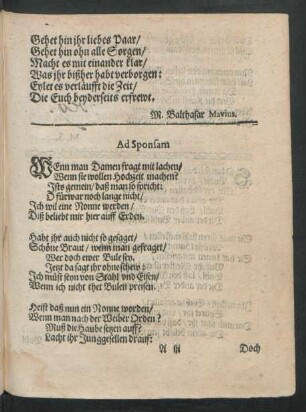 Gehet hin ihr liebes Paar/
Gehet hin ohn alle Sorgen/
Macht es mit einander klar/
Was ihr bißher habt verborgen:
Eylet es verläufft die Zeit/
Die Euch beyderseits erfrewt.
M. Balthasar Mavius.
Ad Sponsam
WEnn man Damen fragt mit lachen/
Wenn sie wollen Hochzeit machen?
Ists gemein/ daß man so spricht:
O fürwar noch lange nicht/
Ich wil eine Nonne werden/
Diß beliebt mir hier auff Erden.
Habt ihr auch nicht so gesaget/
Schöne Braut/ wenn man gefraget/
Wer doch ewer Bule sey.
Jetzt da sag ihr ohne schew:
Ich müst seyn von Stahl und Eysen/
Wenn ich nicht thet Bulen preisen.
Heist daß nun ein Nonne worden/
Wenn man nach der Weiber Orden?
Muß die Haube setzen auff?
Lacht ihr Junggesellen drauff:
A iij
Doch